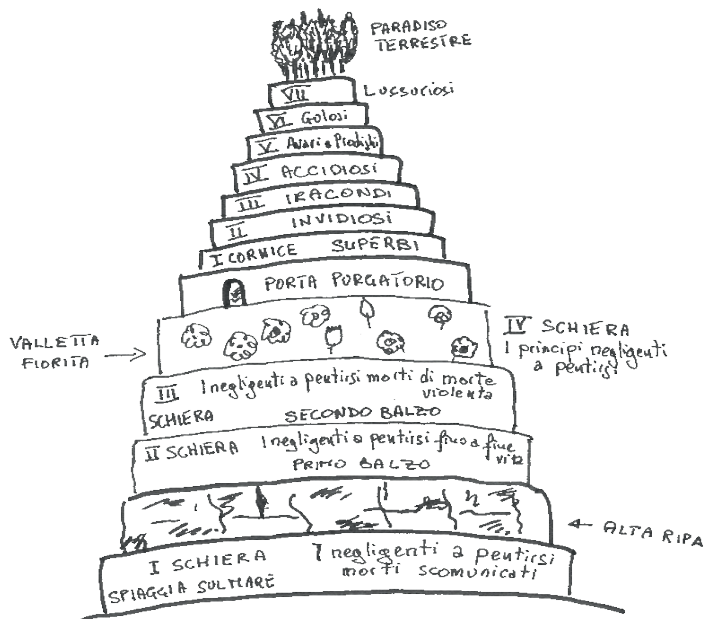 PARADISO
TERRESTRE
VII Lussuriosi
VI Golosi
V Avari e Prodighi
IV ACCIDIOSI
III IRACONDI
II INVIDIOSI
I CORNICE SUPERBI
PORTA PURGATORIO
VALLETTA
FIORITA
IV SCHIERA
I principi negligenti
a pentirsi
III I negligenti a pentirsi morti di morte
violenta
SCHIERA SECONDO BALZO
II SCHIERA I negligenti a pentirsi fino a fine
vita
PRIMO BALZO
ALTA RIPA
I SCHIERA I negligenti a pentirsi
morti scomunicati
SPIAGGIA SUL MARE